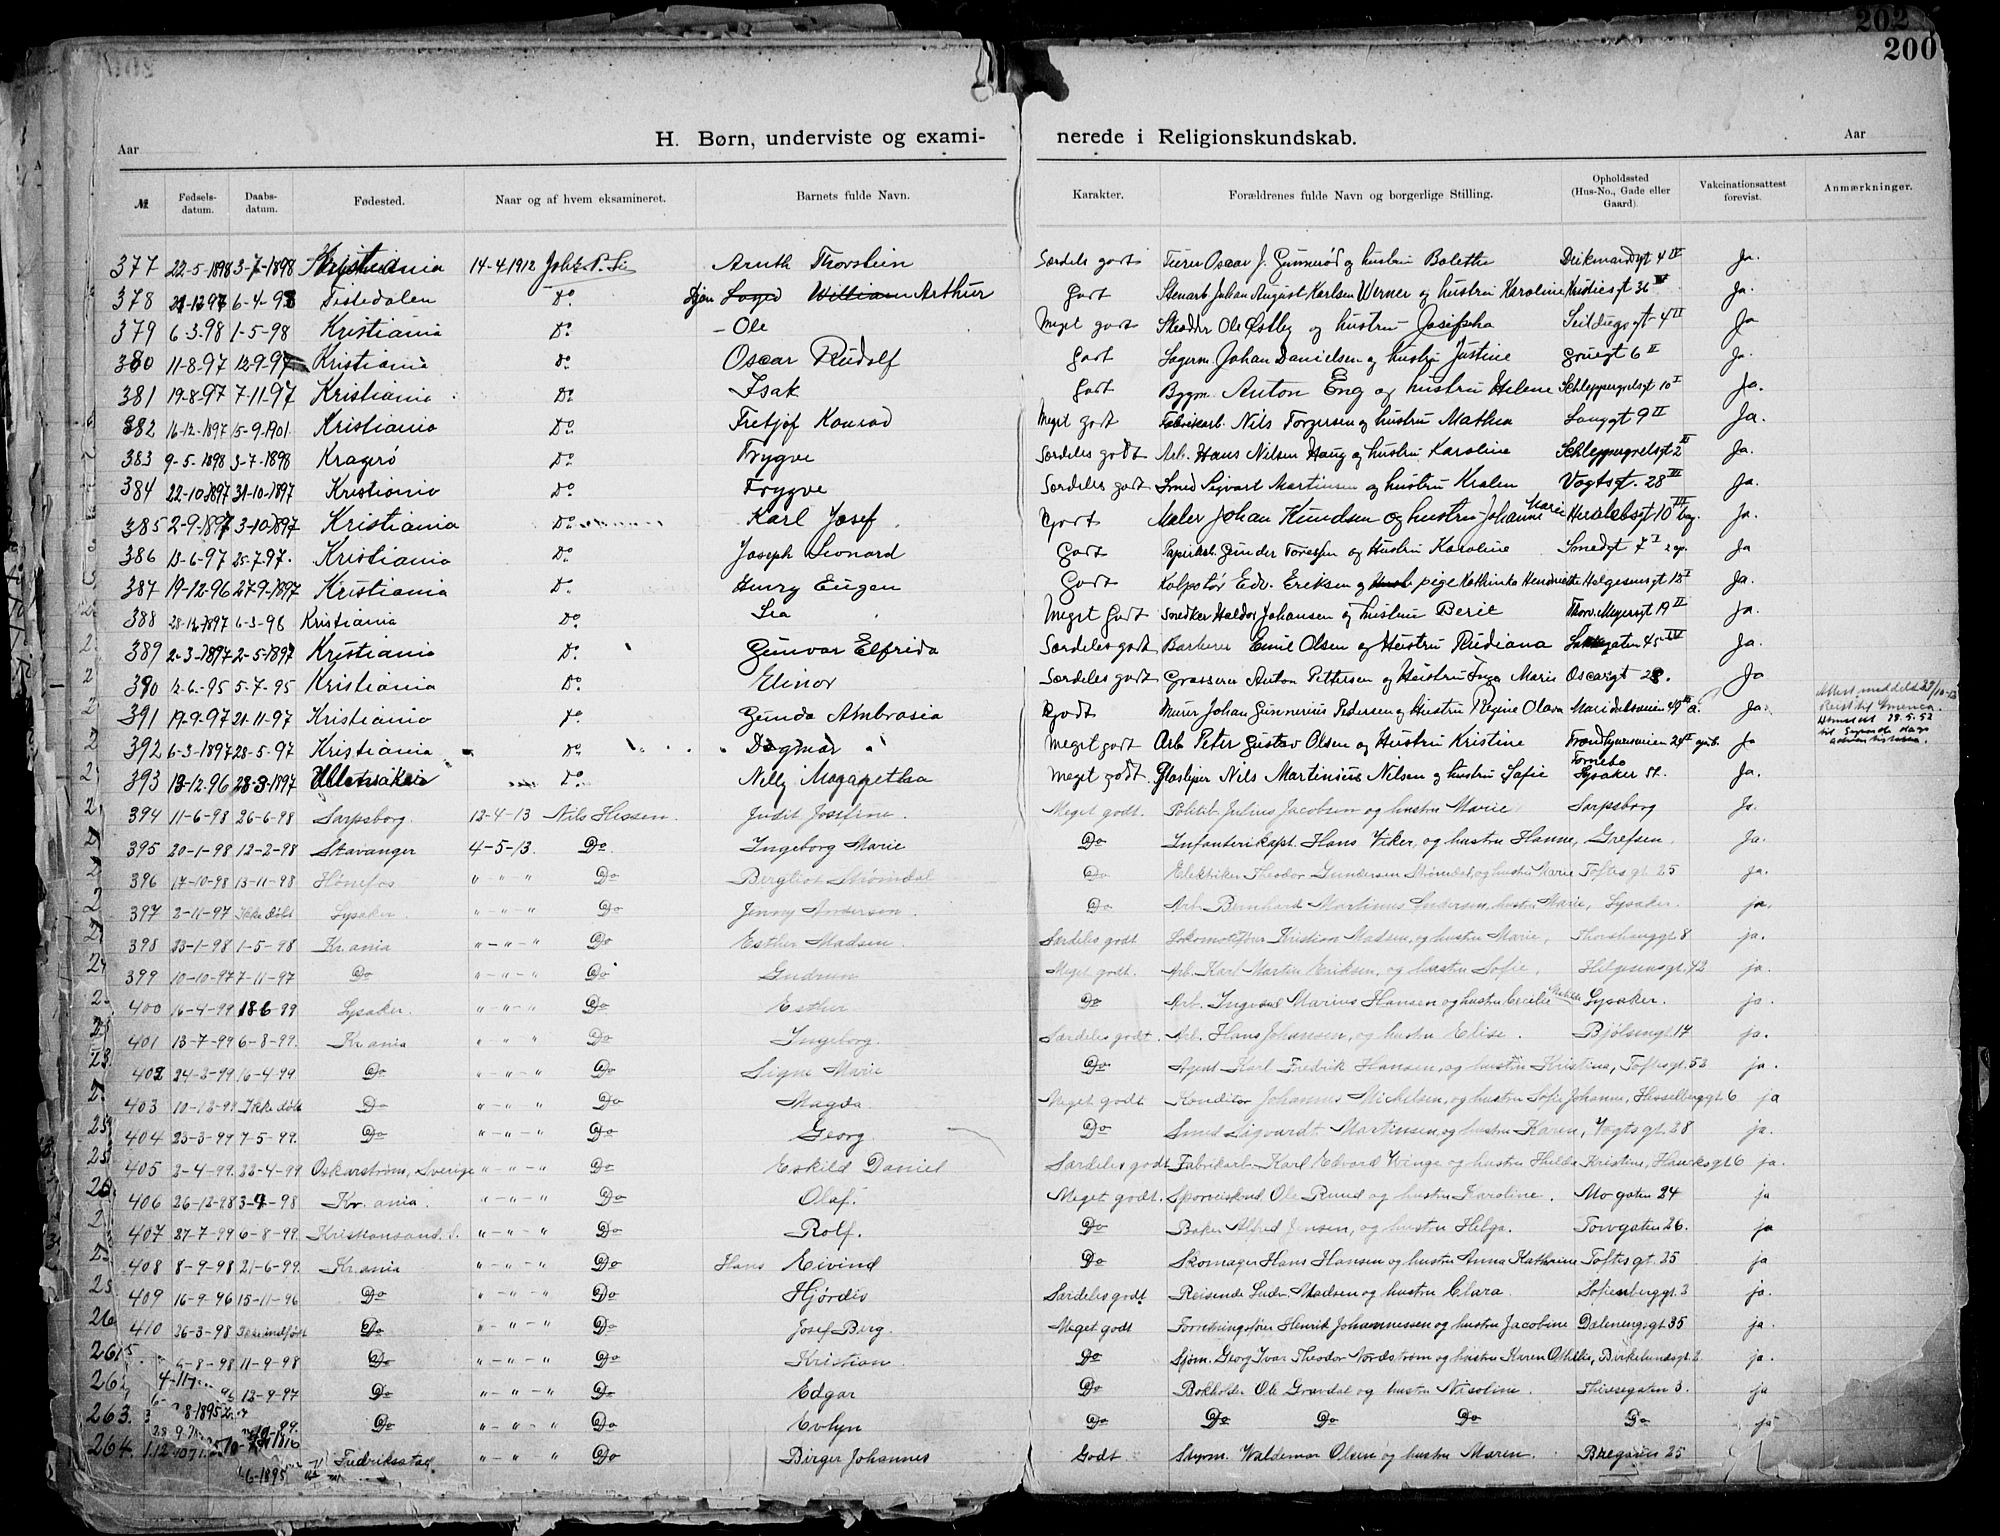 202
200
H. Børn, underviste og exami- nerede i Religionskundskab.
Aar Aar
№ Fødsels-datum. Daabs-datum. Fødested. Naar og af hvem eksamineret. Barnets fulde Navn. Karakter. Forældrenes fulde Navn og borgerlige Stilling. Opholdssted (Hus-No., Gade eller Gaard). Vakcinationsattest forevist. Anmærkninger.
377 22-5-1898 3-7-1898 Kristiania 14-4-1912 Arnth Thorstein Særdels godt Oscar J. Gunnerød og hustru Bolette 4 IV Ja.
378 6-4-98 Tistedalen Do. Arthur Godt Johan August Karlsen Werner og hustru Karoline 36 Ja.
379 6-3-98 1-5-98 Kristiania Do. - Ole Meget godt Ole Østby og hustru Josefha Seildugsgt- 4 II Ja
380 11-8-97 12-9-97 Kristiania Do. Oscar Rudolf Godt Johan Danielsen og hustru Justine 6 II Ja.
381 19-8-97 7-11-97 Kristiania Do. Isak Godt Bygm. Anton Eng og hustru Helene Schleppegrelsgt 10 I Ja.
382 16-12-1897 15-9-1901 Kristiania Do. Fretjof Konrad Meget godt Fabrikarb. Nils Torgersen og hustru Mathea 9 II Ja.
383 9-5-1898 3-7-1898 Kragerø Do. Trygve Særdeles godt Arb. Hans Nilsen Haug og hustru Karoline Schleppegrelsgt 2 Ja.
384 22-10-1897 31-10-1897 Kristiania Do. Trygve Særdeles godt Smed Sigvart Martinsen og hustru Vogtsgt. 28 III Ja.
385 2-9-1897 3-10-1897 Kristiania Do. Karl Josef Godt Maler Johan Knudsen og hustru Johanne Marie Herslebsgt 10 III bag. Ja.
386 13-6-97 25-7-97. Kristiania Do Joseph Leonard Godt Gunder og Hustru Karoline Smedgt 7 I Ja
387 19-12-96 27-9-1897 Kristiania Do. Henry Eugen Godt Kolportør Edv. Eriksen og pige Kathinka Helgesensgt Ja.
388 6-3-96 Kristiania Do Lea Meget Godt Snedker Haldor Johansen og hustru Berit Thorv. Meyersgt 19 II Ja.
389 2-3-1897 2-5-1897 Kristiania Do. Gunvor Elfrida Særdeles godt Barberer Emil Olsen og Hustru Rudiana 45 IV Ja.
390 12-6-95 5-7-95 Kristiania Do. Elinor Særdeles godt Grosserer Anton Pettersen og Hustru Inga Marie Oscarsgt 28. Ja
391 19-9-97 21-11-97 Kristiania Do. Gunda Ambrosia Godt Murer Johan Gunnerius Pedersen og Hustru Regine Olava Maridalsveien 49 III a. Ja.
392 6-3-1897 28-5-97 Kristiania Do Dagmar Meget godt Arb. Peter Gustav Olsen og Hustru Kristine Trondhjemsveien 24 II Ja
393 13-12-96 28-3-1897 Ullensaker Do. Nelly Magaretha Meget godt. Nils Martinius Nilsen og hustru Sofie Fornebo Lysaker st. Ja.
394 11-6-98 26-6-98 Sarpsborg. 12-4-13 Nils Hessen. Judit Josefine. Meget godt. Julius Jacobsen og hustru Marie Sarpsborg Ja.
395 20-1-98 12-2-98 Stavanger 4-5-13. Do Ingeborg Marie Do Infanterikapt. Hans Viker, og hustru Hanne, Grefsen. Ja.
396 17-10-98 13-11-98 Hønefos " " - " Do Bergliot Strømdal Do Elektriker Theodor Gundersen Strømdal, og hustru Marie Toftesgt 25 ja.
397 2-11-97 Ikke døbt Lysaker. " - " - " Do Jenny Andersen. Do Arb. Bernhard Martinius Andersen, hustru Marie, Lysaker. ja.
398 23-1-98 1-5-98 Kr.ania " - " - " Do Esther Madsen. Særdeles godt Lokomotivfører Kristian Madsen, og hustru Marie, Thorshauggt 8 ja.
399 10-10-97 7-11-97 Do " - " - " Do Gudrun Meget godt. Arb. Karl Martin Eriksen, og hustru Sofie, Helgesensgt. 42 ja.
400 16-4-99 18-6-99 Lysaker. " - " " Do Esther Do Arb. Ingvald Marius Hansen og hustru Cecilie Lysaker. ja.
401 13-7-99 6-8-99. Kr.ania " " " Do Ingeborg. Særdeles godt. Arb. Hans Johansen, og hustru Elise. Bjølsengt. 14 ja.
402 24-3-99 16-4-99 Do " - " - " Do Signe Marie Do Agent Karl Fredrik Hansen, og hustru Kristina, Toftesgt. 53 ja.
403 10-12-99 Ikke døbt Do " " " Do Magda. Meget godt Konditor Johannes Michelsen, og hustru Sofie Johanne, Hesselberggt 6 ja
404 23-3-99 7-5-99. Do " - " - " Do Georg. Do Smed Sigvardt Martinsen, og hustru Karen, Vogtsgt. 28 ja.
405 2-4-99. 23-4-99 Oskarstrøm, Sverige " - " - " Do Eskild Daniel Særdeles godt Fabrikarb. Karl Edvard Winge og hustru Hulda Kristine, Hauksgt 6 ja.
406 26-12-98 Kr.ania. " - " - " Do Olaf. Meget godt. Sporveiskond. Ole Ruud og hustru Karoline. Mogaten 24 ja
407 27-7-99 6-8-99. Kristiansand. S. " - " - " Do Rolf. Do Baker Alfred Jensen, og hustru Helga. Torvgaten 26. ja
408 8-9-98 21-6-99. Kr.ania " - " - " Do Hans Eivind Do Skomager Hans Hansen og hustru Anna Kathrine Toftesgt. 25 ja
409 16-9-96 15-11-96 Do " - " - " Do Hjørdis Særdeles godt Reisende Ludv. Madsen og hustru Clara. Sofienberggt. 3 ja.
410 26-3-98 Ikke indført Do " - " - " Do Josef Berg. Meget godt Forretningsfører Henrik Johannessen og hustru Jacobine Dælenenggt 35 ja.
2615 8-98 11-9-98 Do " - " - " Do Kristian. Do Sjøm. Georg Ivar Theodor Nordstrøm og hustru Karen Othilie, Birkelundsgt. 2 ja.
262 13-9-97 Do " - " - " Do Edgar Do Bokholder Ole Gravdal og hustru Nicoline. Thiresegaten 3. ja
263. Do " - " - " Do Evelyn Do Do Do Do Do ja
264. Fredriksstad " - " - " Do Birger Johannes Godt Styrm. Waldemar Olsen og hustru Maren. 25 ja
6-1895